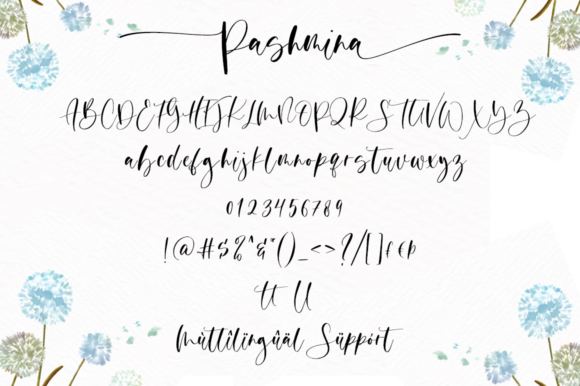 Pashmina
ABCDEFGHIJKLMNOPQRSTUVWXYZ
abcdefghijklmnopqrstuvwxyz
0123456789
!@#$%^&*()_<>?/[]{}
tt ll
Müttîlïngûäl Süppört